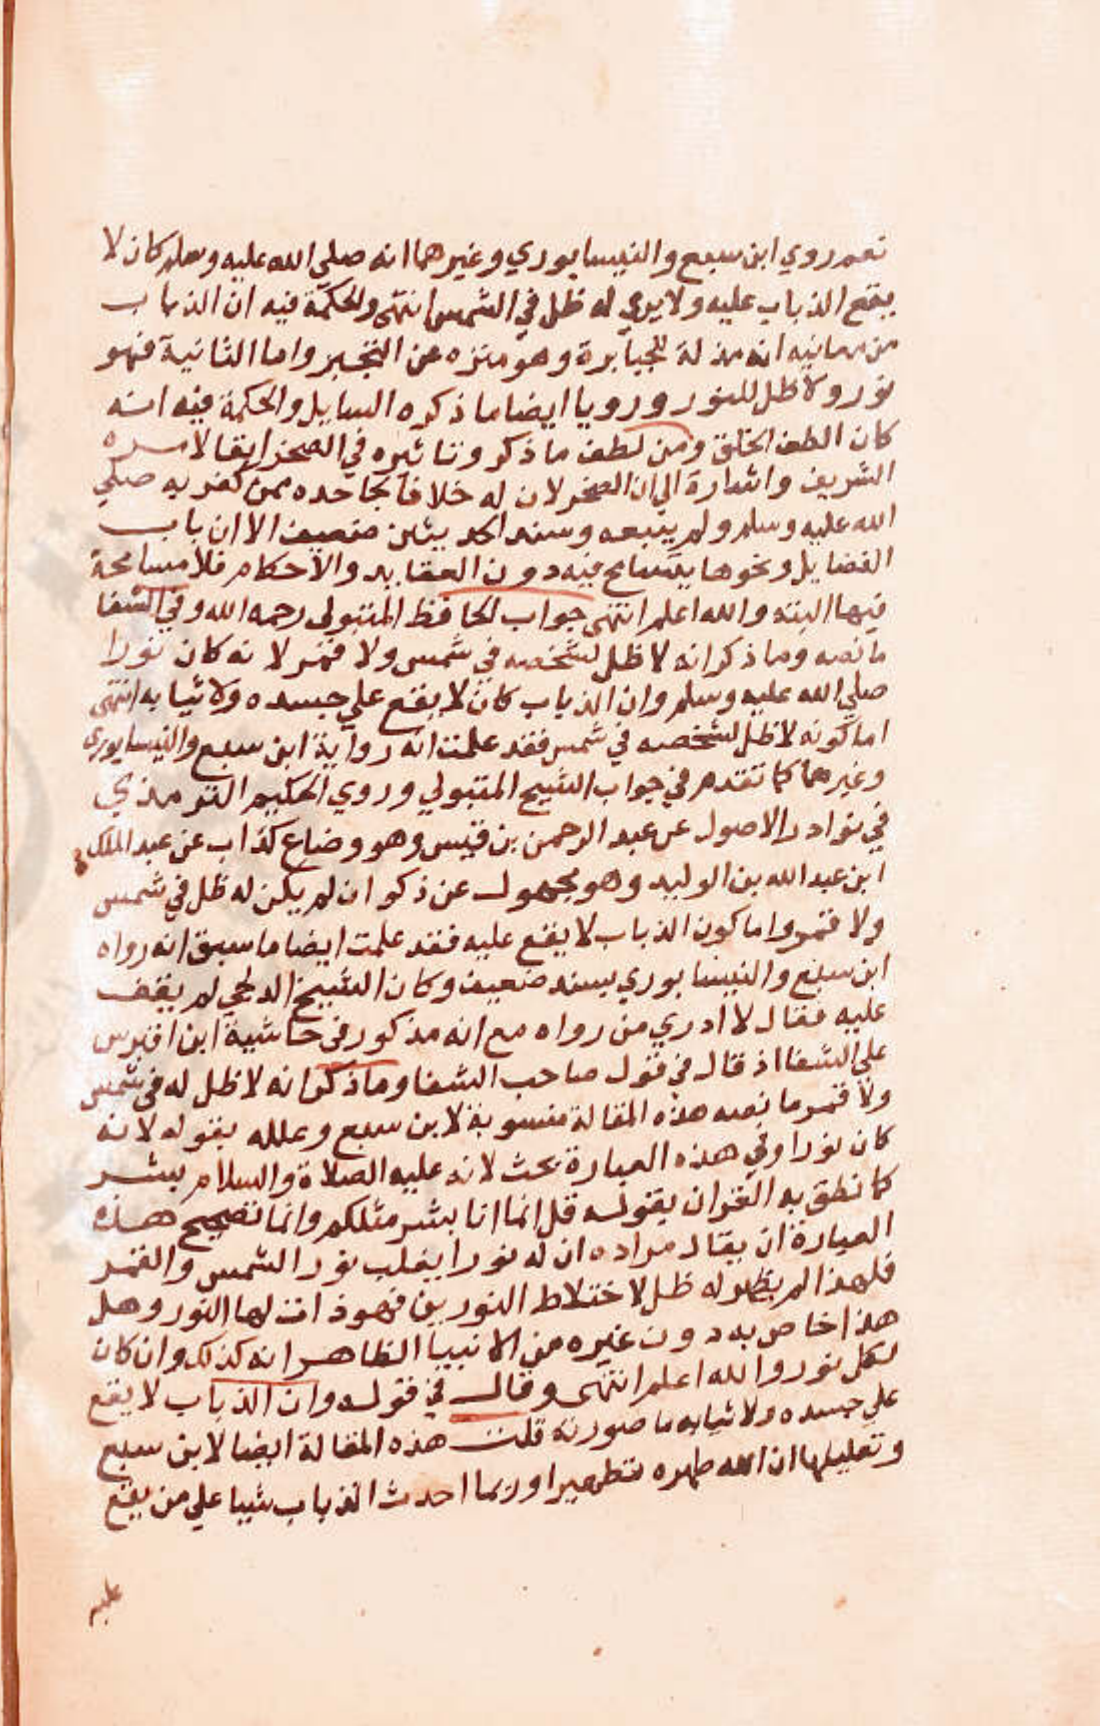 نعم روي ابن سبع والنيسابوري وغيرهما انه صلي الله عليه وسلم كان لا
يقع الذباب عليه ولا يري له ظل في الشمس انتهى والحكمة فيه ان الذباب
من مهانيه انه مذلة للجبابرة وهو منزه عن التجبر واما الثانية فهو
نور ولا ظل للنور ورويا ايضا ما ذكره السايل والحكمة فيه انه
كان الطف الخلق ومن لطف ما ذكر وتاثيره في الصخر ابقا لامره
الشريف واشارة الي ان الصخر لان له خلافا لجاحده ممن كفر به صلي
الله عليه وسلم ولم يتبعه وسند الحديثين ضعيف الا ان باب
الفضايل ونحوها يتسامح فيه دون العقايد والاحكام فلا مسامحة
فيها البته والله اعلم انتهى جواب الحافظ المتبولي رحمه الله وفي الشفا
ما نصه وما ذكر انه لا ظل لشخصه في شمس ولا قمر لانه كان نورا
صلي الله عليه وسلم وان الذباب كان لا يقع علي جسده ولا ثيابه انتهى
اما كونه لا ظل لشخصه في شمس فقد علمت انه رواية ابن سبع والنيسابوري
وغيرهما كما تقدم في جواب الشيخ المتبولي وروي الحكيم الترمذي
في نوادر الاصول عن عبد الرحمن بن قيس وهو وضاع كذاب عن عبد الملك
ابن عبد الله بن الوليد وهو مجهول عن ذكوان لم يكن له ظل في شمس
ولا قمر واما كون الذباب لا يقع عليه فقد علمت ايضا ما سبق انه رواه
ابن سبع والنيسابوري بسند ضعيف وكان الشيخ الدلجي لم يقف
عليه فقال لا ادري من رواه مع انه مذكور في حاشية ابن اقبرس
علي الشفا اذ قال في قول صاحب الشفا وما ذكر انه لا ظل له في شمس
ولا قمر ما نصه هذه المقالة منسوبة لابن سبع وعلله بقوله لانه
كان نورا وفي هذه العبارة بحث لانه عليه الصلاة والسلام بشر
كما نطق به القران بقوله قل انما انا بشر مثلكم وانما تصحيح هذه
العبارة ان يقال مراده ان له نورا يغلب نور الشمس والقمر
فلهذا لم يظهر له ظل لاختلاط النورين فهو ذات لها النور وهل
هذا خاص به دون غيره من الانبيا الظاهر انه كذلك وان كان
لكل نور والله اعلم انتهى وقال في قوله وان الذباب لا يقع
علي جسده ولا ثيابه ما صورته قلت هذه المقالة ايضا لابن سبع
وتعليلها ان الله طهره تطهيرا وربما احدث الذباب شيا علي من يقع
عليه